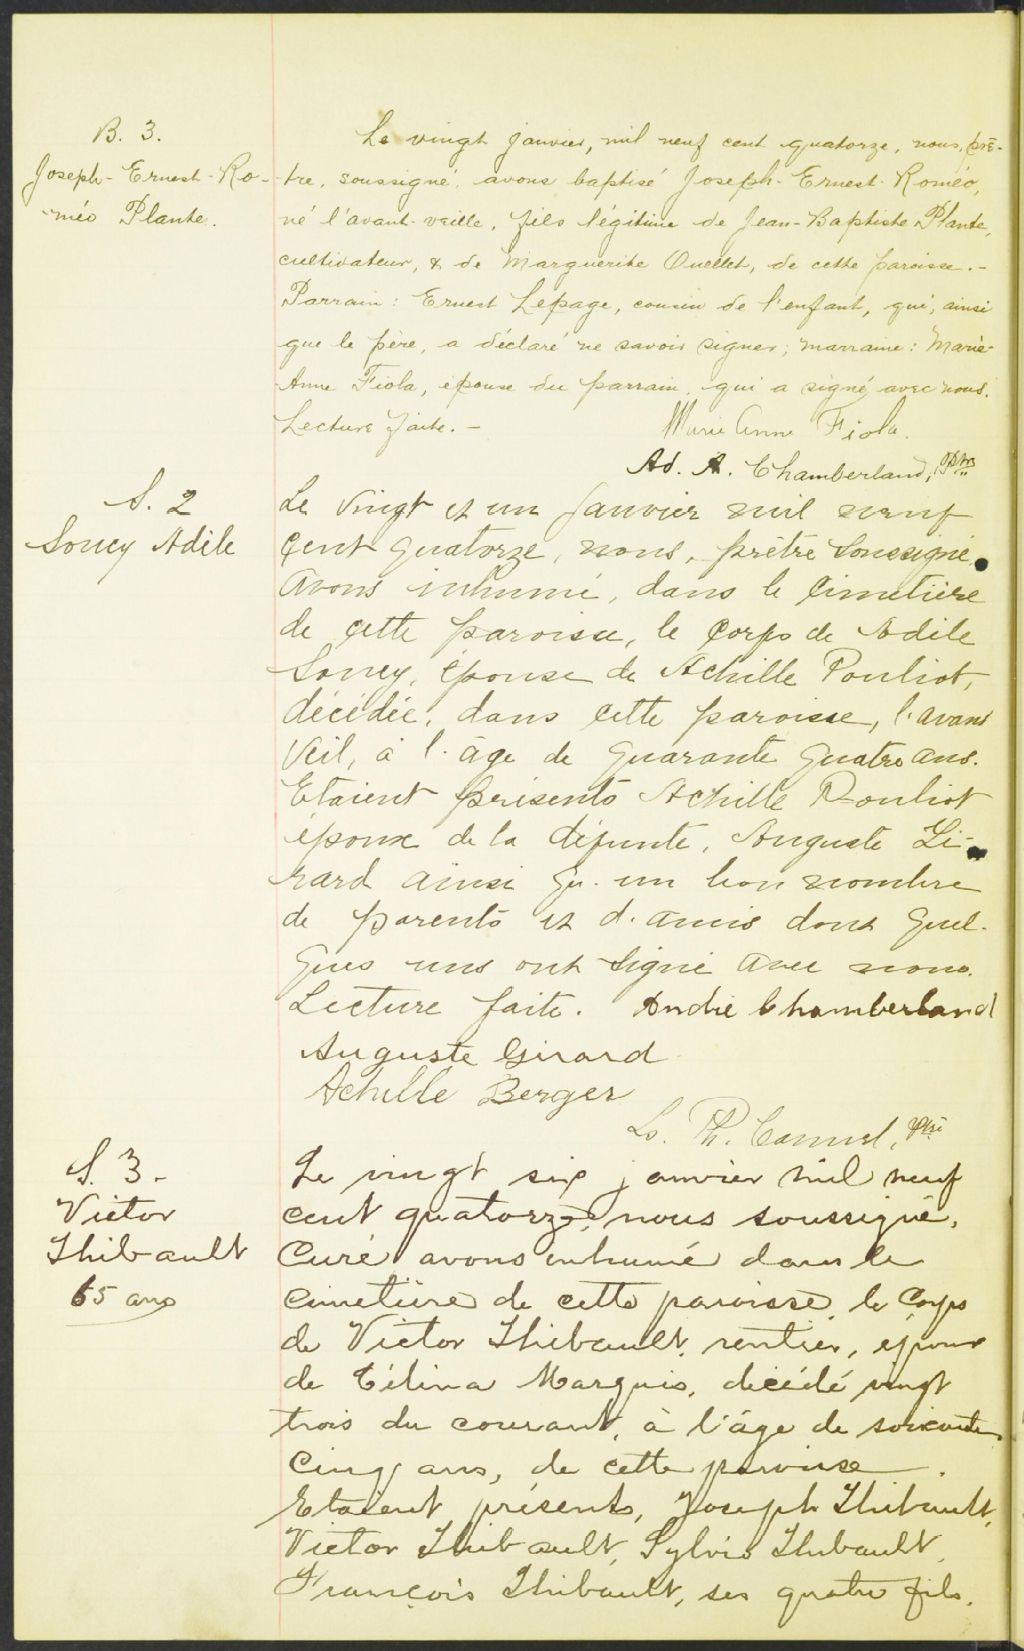 B. 3.
Joseph-Ernest-Ro-
-méo Plante.
Le vingt janvier, mil neuf cent quatorze, nous, prê-
-tre, soussigné, avons baptisé Joseph-Ernest-Roméo,
né l'avant-veille, fils légitime de Jean-Baptiste Plante,
cultivateur, & de Marguerite Ouellet, de cette paroisse.-
Parrain: Ernest Lepage, cousin de l'enfant, qui, ainsi
que le père, a déclaré ne savoir signer; marraine: Marie-
Anne Fiola, épouse du parrain, qui a signé avec nous.
Lecture faite.-
Marie Anne Fiola.
Ad. A. Chamberland, Ptre
S. 2
Soucy Adèle
Le vingt et un janvier mil neuf
cent quatorze, nous, prêtre soussigné,
avons inhumé, dans le cimetière
de cette paroisse, le corps de Adèle
Soucy, épouse de Achille Pouliot,
décédée, dans cette paroisse, l'avant
veil, à l'âge de quarante quatre ans.
Etaient présents Achille Pouliot
époux de la défunte, Auguste Gi-
rard ainsi qu'un bon nombre
de parents et d'amis dont quel-
ques uns ont signé avec nous.
Lecture faite. André Chamberland
Auguste Girard
Achille Berger
Ls. Ph. Camuel, ptre
S. 3-
Victor
Thibault
65 ans
Le vingt six janvier mil neuf
cent quatorze, nous soussigné,
Curé avons inhumé dans le
cimetière de cette paroisse le corps
de Victor Thibault, rentier, époux
de Célina Marquis, décédé vingt
trois du courant, à l'âge de soixante
cinq ans, de cette paroisse.
Etaient présents, Joseph Thibault,
Victor Thibault, Sylvio Thibault,
François Thibault, ses quatre fils,